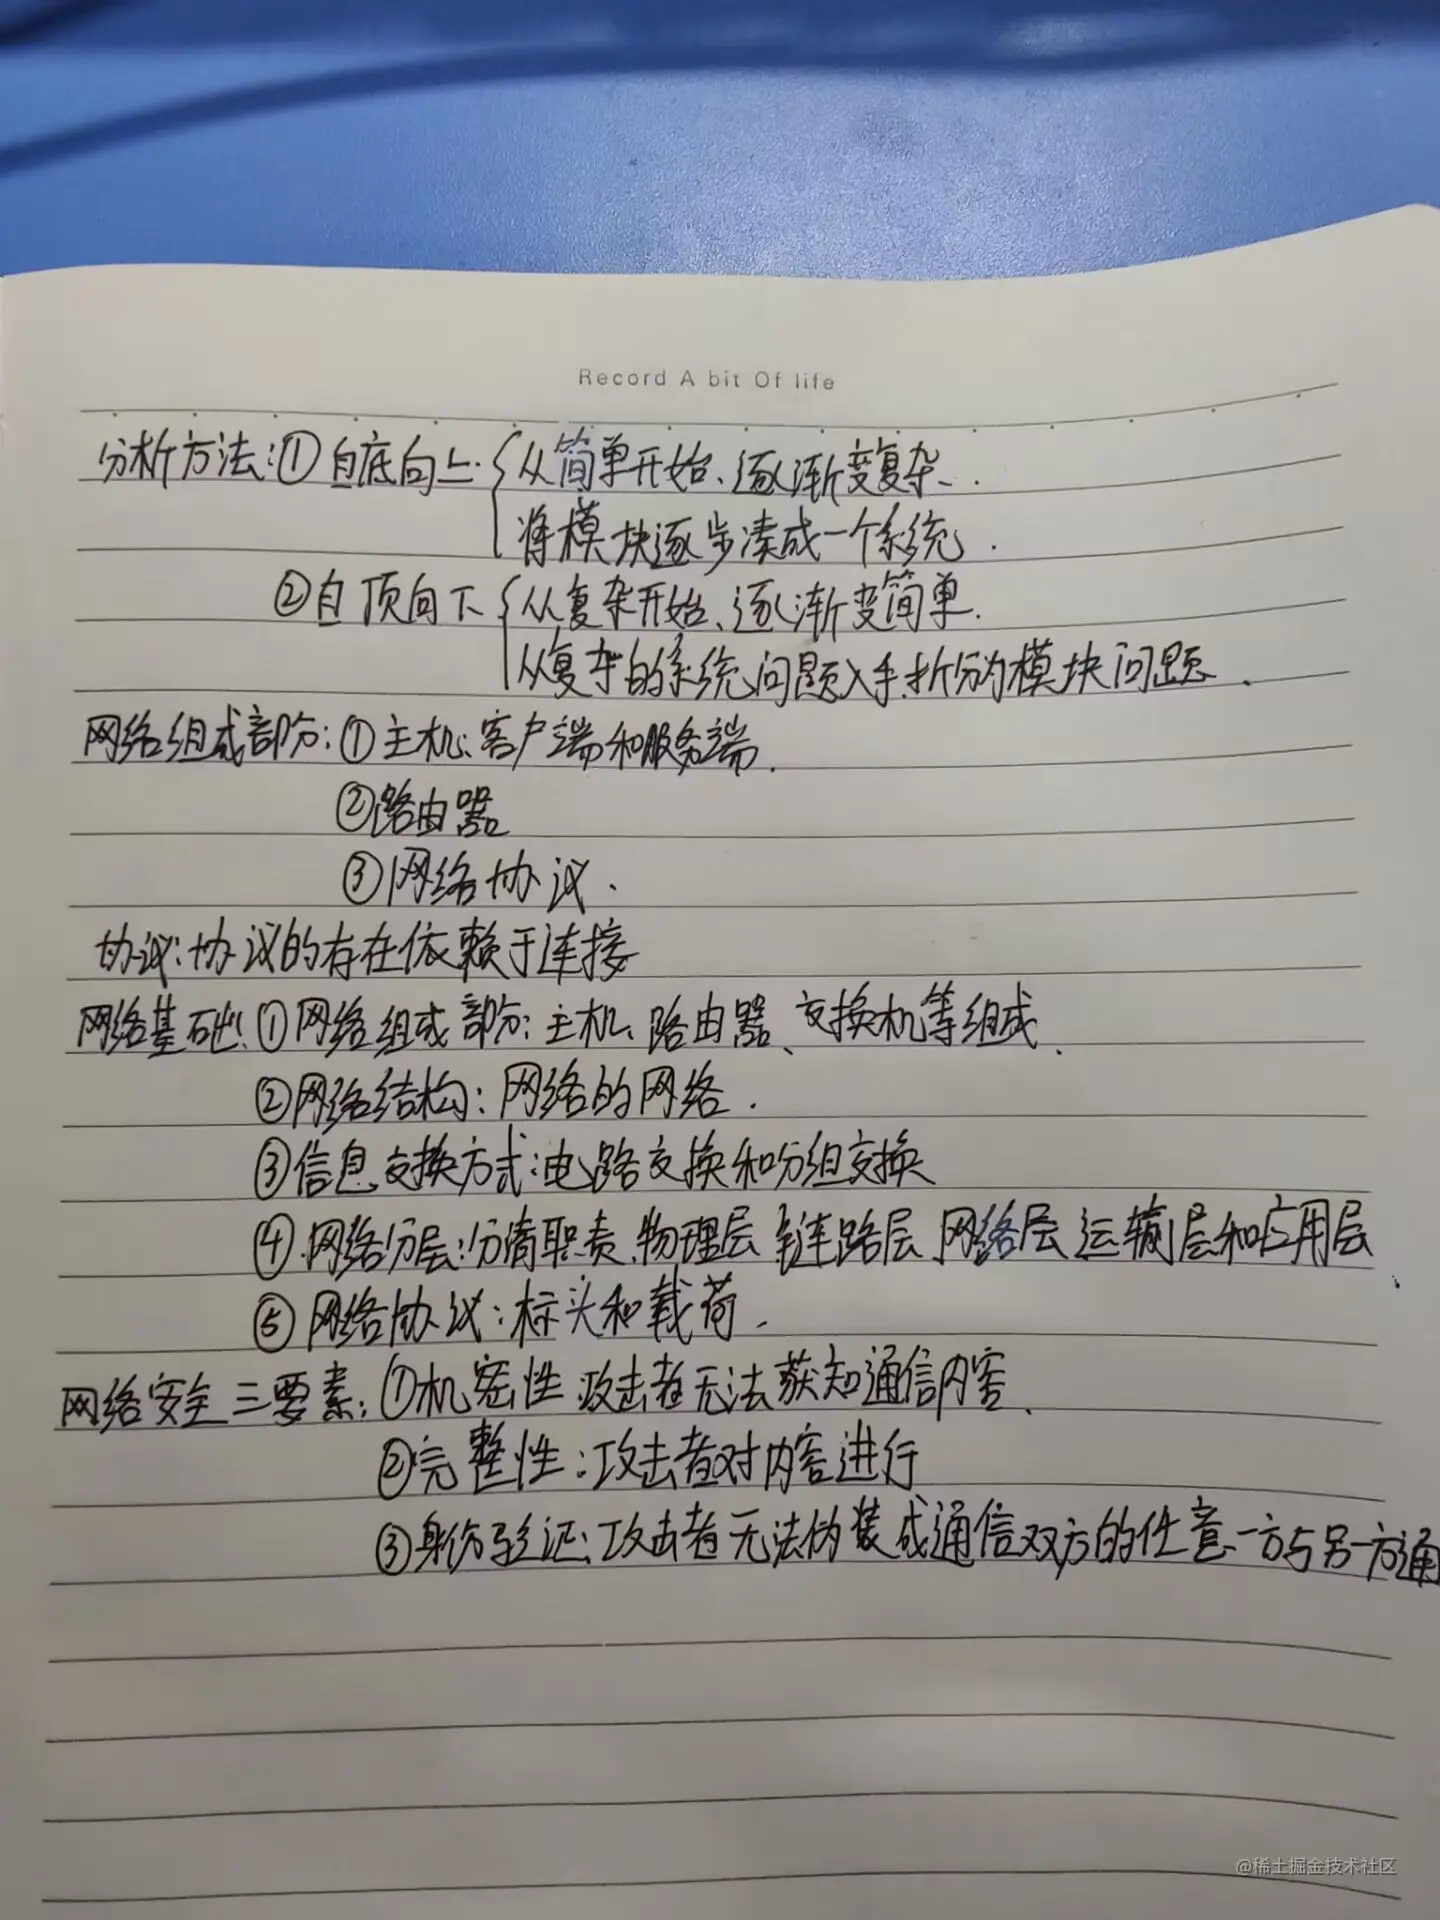 Record A bit Of life
分析方法:①自底向上.{从简单开始、逐渐变复杂.
将模块逐步凑成一个系统.
②自顶向下{从复杂开始、逐渐变简单.
从复杂的系统问题入手.拆分为模块问题.
网络组成部分:①主机:客户端和服务端.
②路由器
③网络协议.
协议:协议的存在依赖于连接
网络基础:①网络组成部分:主机、路由器、交换机等组成.
②网络结构:网络的网络.
③信息交换方式:电路交换和分组交换
④.网络分层:分清职责.物理层 链路层、网络层 运输层和应用层.
⑤网络协议:标头和载荷.
网络安全三要素:①机密性.攻击者无法获知通信内容.
②完整性:攻击者对内容进行
③身份验证:攻击者无法伪装成通信双方的任意一方与另一方通
@稀土掘金技术社区